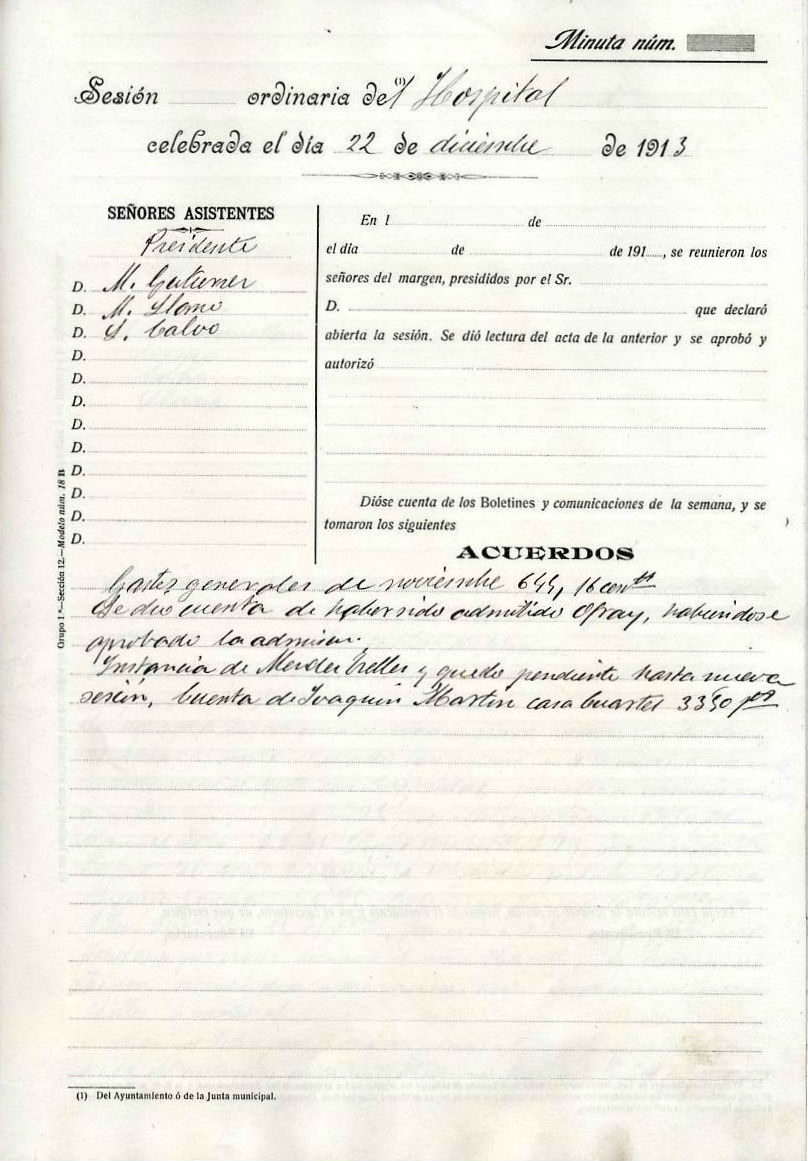 Minuta núm.
Sesión ordinaria del (1) Hospital
celebrada el día 22 de diciembre de 1913
SEÑORES ASISTENTES
Presidente
D. M. Gutierrez
D. M. Llano
D. S. Calvo
D.
D.
D.
D.
D.
D.
D.
D.
D.
Grupo 1.º—Sección 12.—Modelo núm. 18 B
En l de
el día de de 191 , se reunieron los
señores del margen, presididos por el Sr.
D. que declaró
abierta la sesión. Se dió lectura del acta de la anterior y se aprobó y
autorizó
Dióse cuenta de los Boletines y comunicaciones de la semana, y se
tomaron los siguientes
ACUERDOS
Gastos generales de noviembre 644, 16 cents
Se dio cuenta de haber sido admitido habiendose
aprobado la admision.
Instancia de Mendez y quedo pendiente hasta nueva
sesion, Cuenta de Joaquin Martin casa Cuartel 33'50 pts
(1) Del Ayuntamiento ó de la Junta municipal.